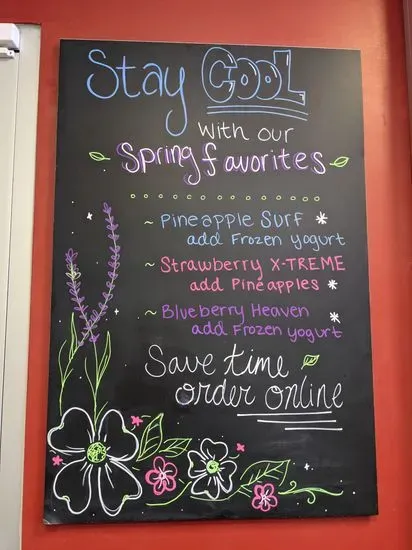 Stay COOL
with our
Spring favorites
~ Pineapple Surf *
add Frozen yogurt
~ Strawberry X-TREME
add Pineapples *
~ Blueberry Heaven *
add Frozen yogurt
Save time
order online